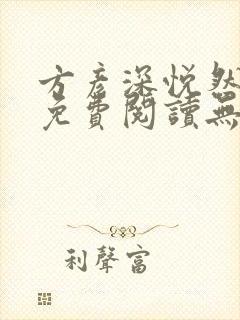 方彥深悅然
免費閱讀無
利聲富